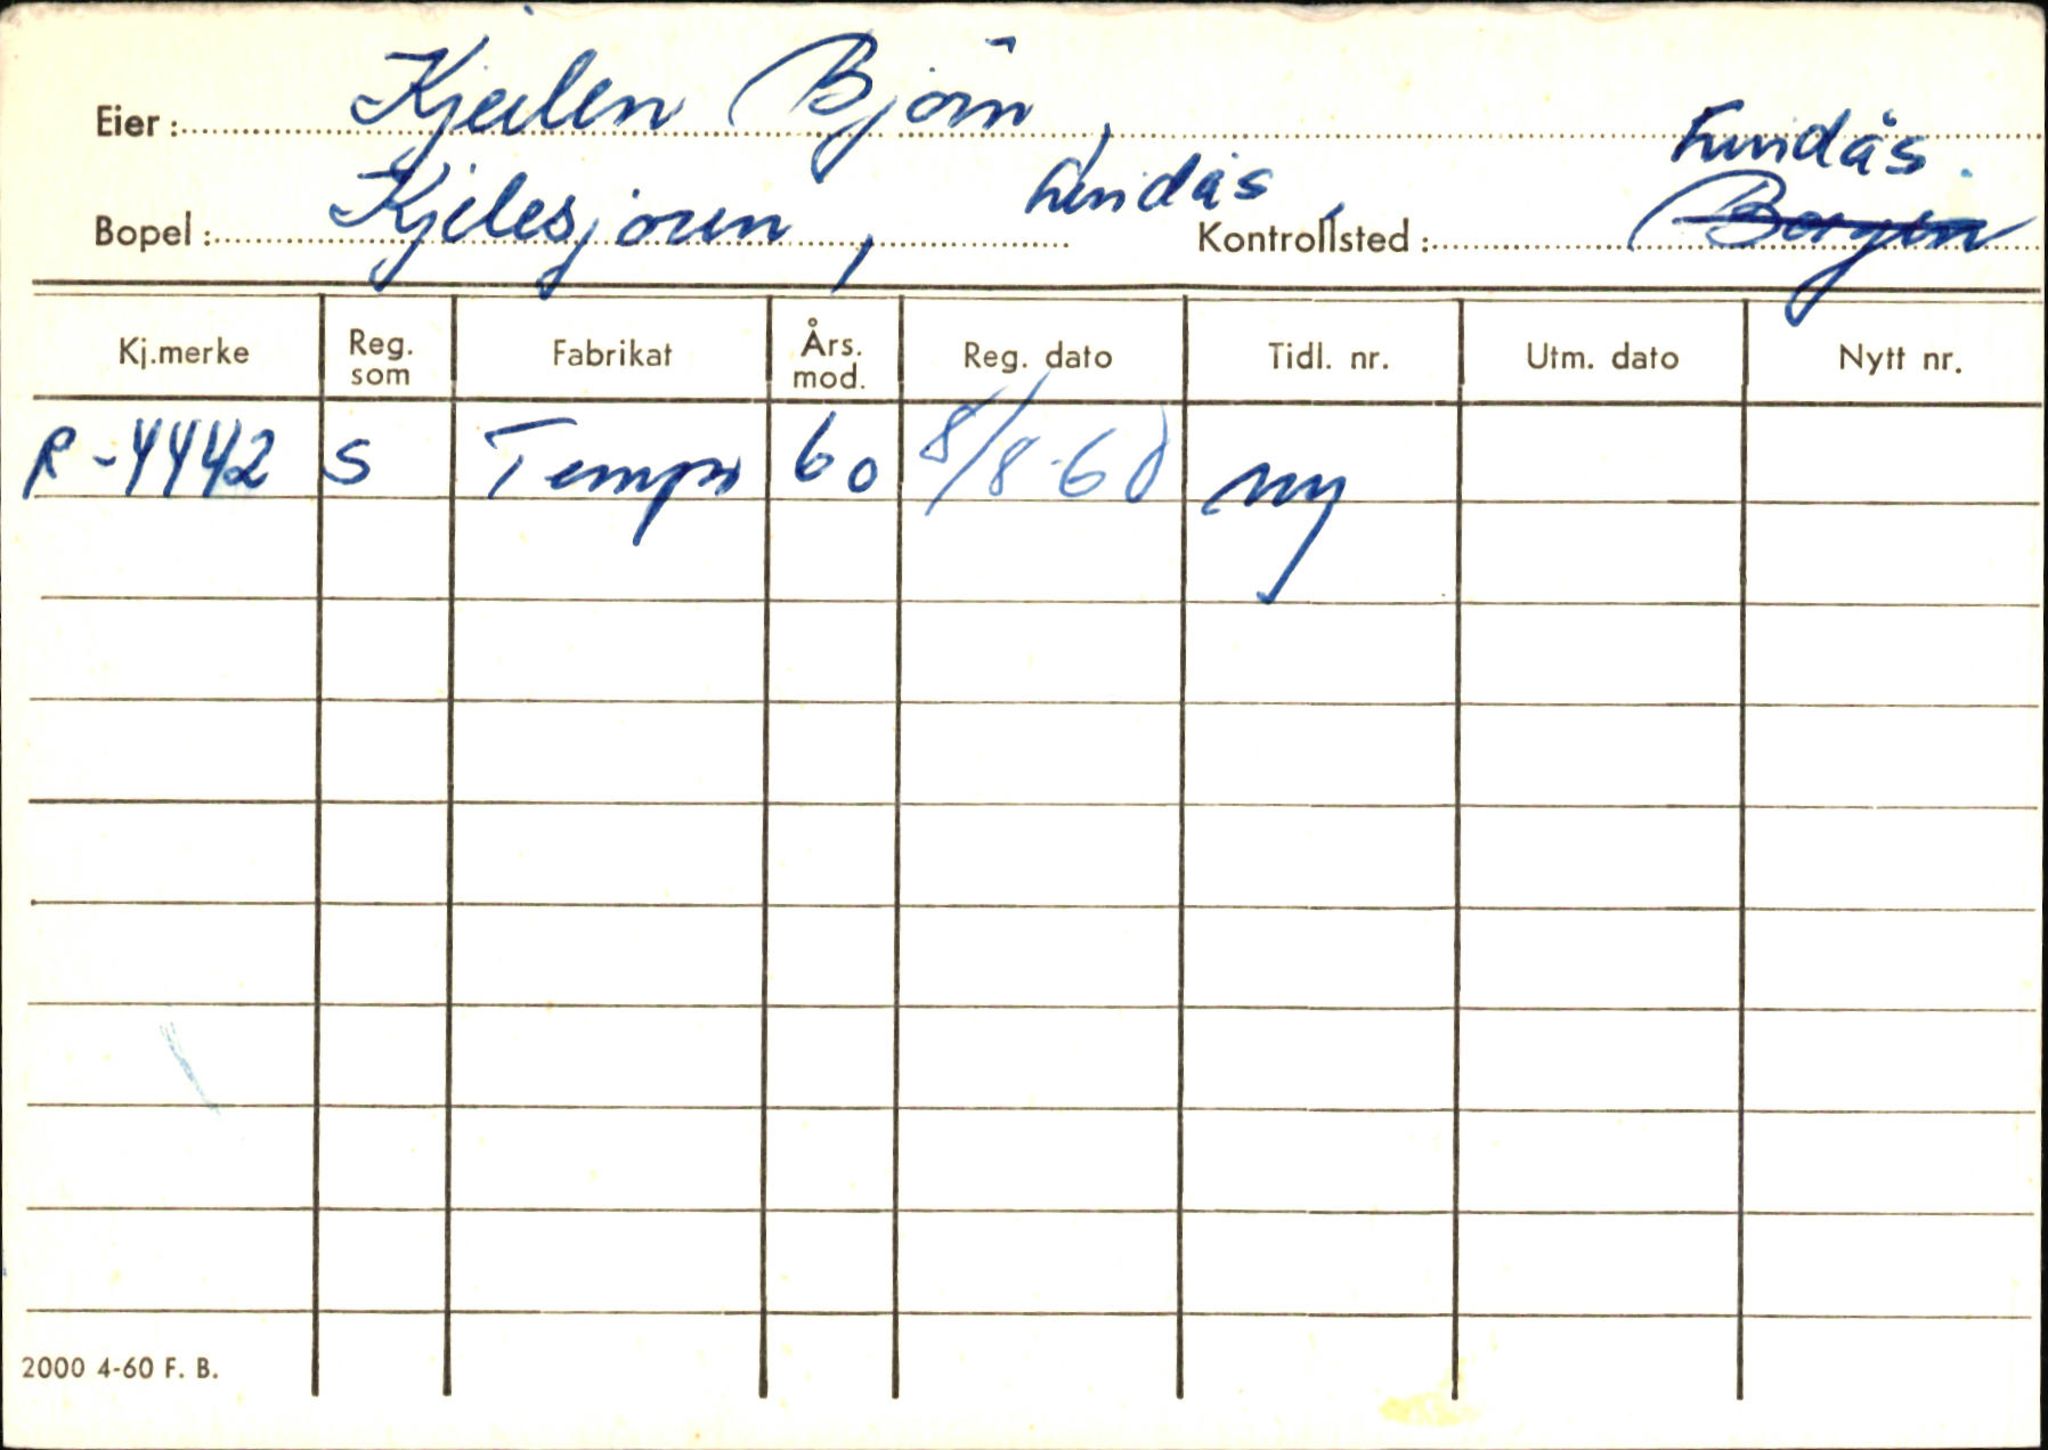 Eier: Kjeilen Bjørn,
Bopel: Kjelesjoen, Lindås, Kontrollsted: Lindås. Bergen
Kj.merke Reg. som Fabrikat Års. mod. Reg. dato Tidl. nr. Utm. dato Nytt nr.
R-4442 S Tempo 60 8/8-60 ny
2000 4-60 F. B.